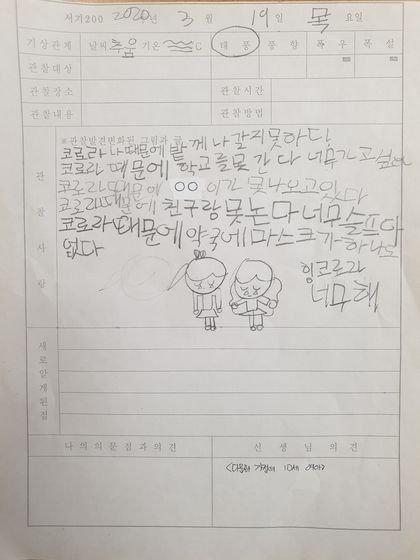 서기200 2020년 3월 19일 목요일
기상관계 날씨 추움 기온 C 태풍 풍향 폭우 폭설
관찰대상
관찰장소 관찰시간
관찰내용 관찰방법
관찰사항
※관찰발견변화된 그림과 글
코로라 나때문에 밖께 나갈지못하다!
코로라 때문에 학교를못간다 너무가고싶어
코로라 때문에 ㅇㅇ이가 못나오고있다
코로라때문에 친구랑못논다너무슬프다
코로라때문에약국에마스크가하나도
없다
힝코로라
너무해
새로알게된점
나의의문점과의견 선생님의견